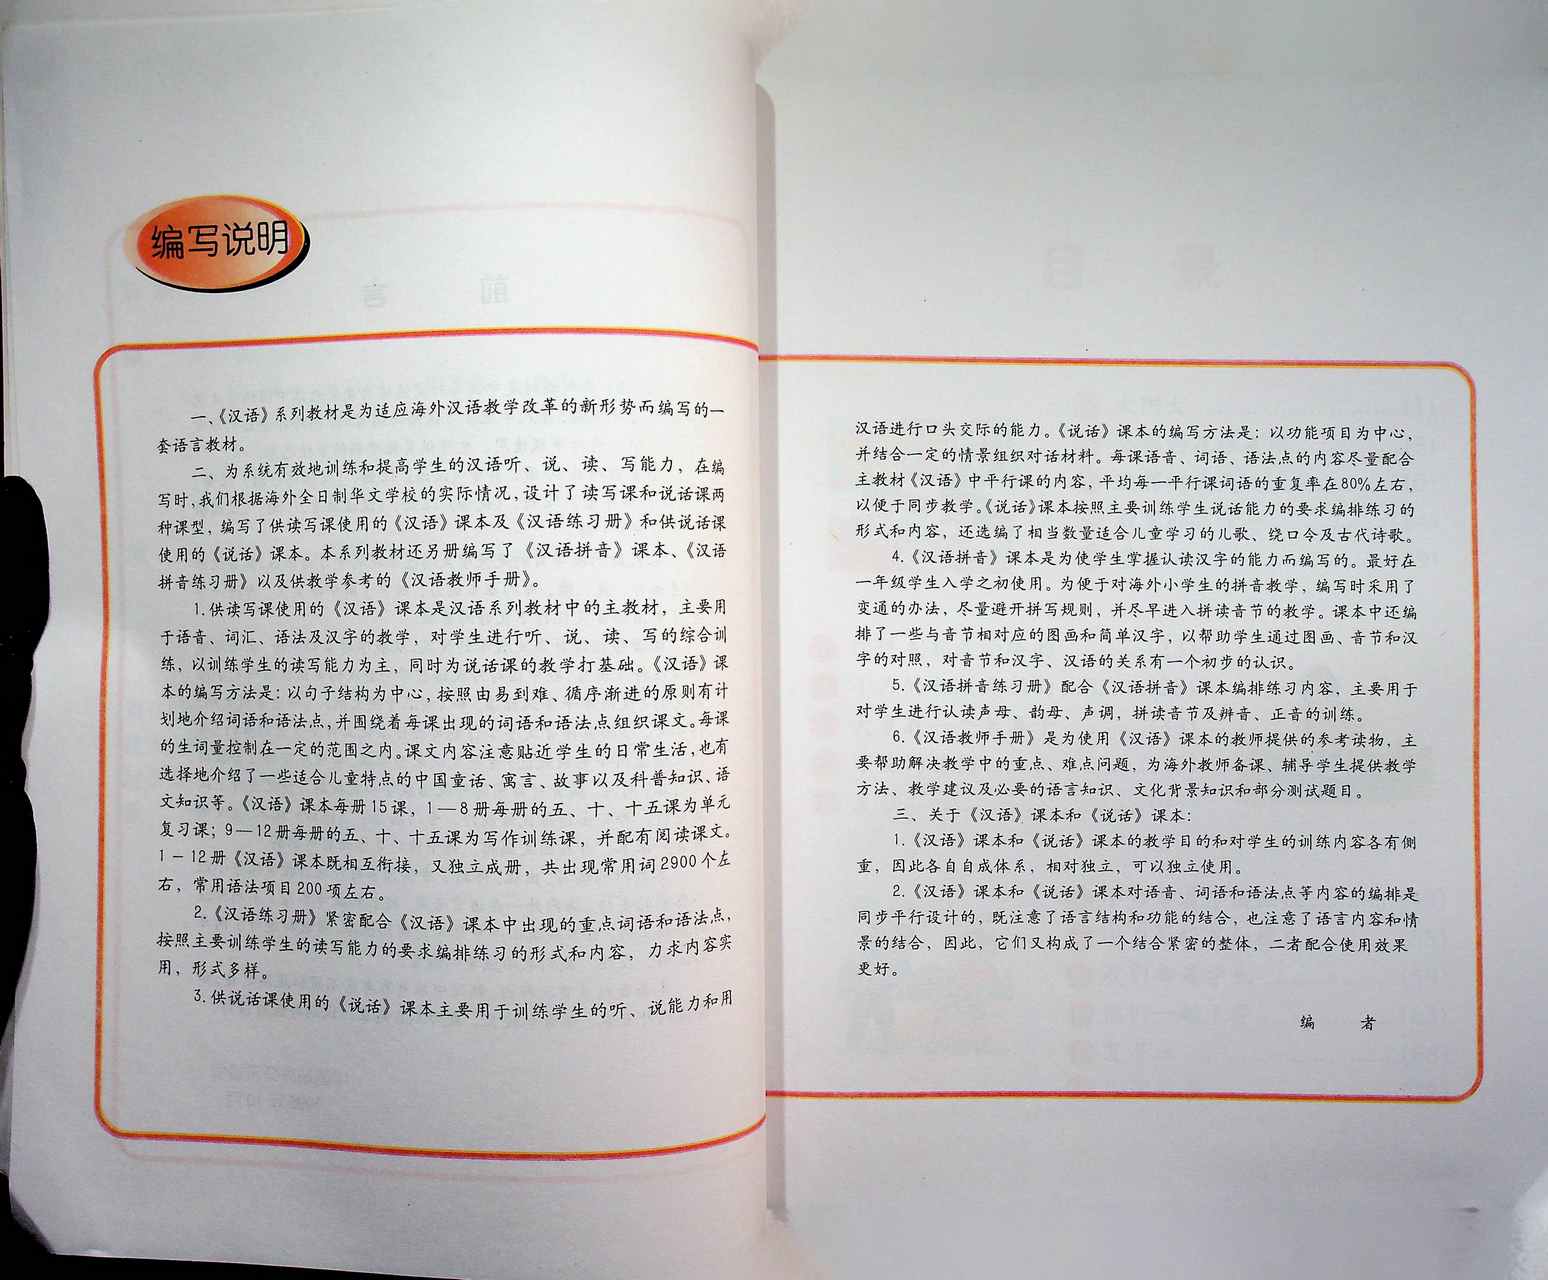 编写说明
一、《汉语》系列教材是为适应海外汉语教学改革的新形势而编写的一
套语言教材。
二、为系统有效地训练和提高学生的汉语听、说、读、写能力，在编
写时，我们根据海外全日制华文学校的实际情况，设计了读写课和说话课两
种课型，编写了供读写课使用的《汉语》课本及《汉语练习册》和供说话课
使用的《说话》课本。本系列教材还另册编写了《汉语拼音》课本、《汉语
拼音练习册》以及供教学参考的《汉语教师手册》。
1.供读写课使用的《汉语》课本是汉语系列教材中的主教材，主要用
于语音、词汇、语法及汉字的教学，对学生进行听、说、读、写的综合训
练，以训练学生的读写能力为主，同时为说话课的教学打基础。《汉语》课
本的编写方法是：以句子结构为中心，按照由易到难、循序渐进的原则有计
划地介绍词语和语法点，并围绕着每课出现的词语和语法点组织课文。每课
的生词量控制在一定的范围之内。课文内容注意贴近学生的日常生活，也有
选择地介绍了一些适合儿童特点的中国童话、寓言、故事以及科普知识、语
文知识等。《汉语》课本每册15课，1—8册每册的五、十、十五课为单元
复习课；9—12册每册的五、十、十五课为写作训练课，并配有阅读课文。
1－12册《汉语》课本既相互衔接，又独立成册，共出现常用词2900个左
右，常用语法项目200项左右。
2.《汉语练习册》紧密配合《汉语》课本中出现的重点词语和语法点，
按照主要训练学生的读写能力的要求编排练习的形式和内容，力求内容实
用，形式多样。
3.供说话课使用的《说话》课本主要用于训练学生的听、说能力和用
汉语进行口头交际的能力。《说话》课本的编写方法是：以功能项目为中心，
并结合一定的情景组织对话材料。每课语音、词语、语法点的内容尽量配合
主教材《汉语》中平行课的内容，平均每一平行课词语的重复率在80%左右，
以便于同步教学。《说话》课本按照主要训练学生说话能力的要求编排练习的
形式和内容，还选编了相当数量适合儿童学习的儿歌、绕口令及古代诗歌。
4.《汉语拼音》课本是为使学生掌握认读汉字的能力而编写的。最好在
一年级学生入学之初使用。为便于对海外小学生的拼音教学，编写时采用了
变通的办法，尽量避开拼写规则，并尽早进入拼读音节的教学。课本中还编
排了一些与音节相对应的图画和简单汉字，以帮助学生通过图画、音节和汉
字的对照，对音节和汉字、汉语的关系有一个初步的认识。
5.《汉语拼音练习册》配合《汉语拼音》课本编排练习内容，主要用于
对学生进行认读声母、韵母、声调，拼读音节及辨音、正音的训练。
6.《汉语教师手册》是为使用《汉语》课本的教师提供的参考读物，主
要帮助解决教学中的重点、难点问题，为海外教师备课、辅导学生提供教学
方法、教学建议及必要的语言知识、文化背景知识和部分测试题目。
三、关于《汉语》课本和《说话》课本：
1.《汉语》课本和《说话》课本的教学目的和对学生的训练内容各有侧
重，因此各自自成体系，相对独立，可以独立使用。
2.《汉语》课本和《说话》课本对语音、词语和语法点等内容的编排是
同步平行设计的，既注意了语言结构和功能的结合，也注意了语言内容和情
景的结合，因此，它们又构成了一个结合紧密的整体，二者配合使用效果
更好。
编 者